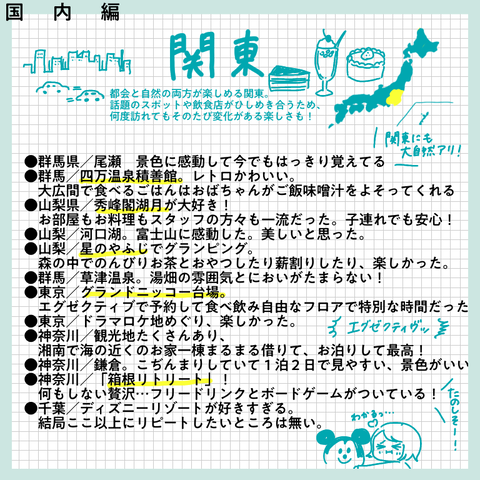 国内編
関東
都会と自然の両方が楽しめる関東。
話題のスポットや飲食店がひしめき合うため、
何度訪れてもそのたび変化がある楽しさも！
関東にも
大自然アリ！
●群馬県／尾瀬　景色に感動して今でもはっきり覚えてる
●群馬／四万温泉積善館。レトロかわいい。
大広間で食べるごはんはおばちゃんがご飯味噌汁をよそってくれる
●山梨県／秀峰閣湖月が大好き！
お部屋もお料理もスタッフの方々も一流だった。子連れでも安心！
●山梨／河口湖。富士山に感動した。美しいと思った。
●山梨／星のやふじでグランピング。
森の中でのんびりお茶とおやつしたり薪割りしたり、楽しかった。
●群馬／草津温泉。湯畑の雰囲気とにおいがたまらない！
●東京／グランドニッコー台場。
エグゼクティブで予約して食べ飲み自由なフロアで特別な時間だった
●東京／ドラマロケ地めぐり、楽しかった。
エグゼクティヴッ
●神奈川／観光地たくさんあり、
湘南で海の近くのお家一棟まるまる借りて、お泊りして最高！
●神奈川／鎌倉。こぢんまりしていて１泊２日で見やすい、景色がいい
●神奈川／「箱根リトリート」！
何もしない贅沢…フリードリンクとボードゲームがついている！
たのしそー！！
●千葉／ディズニーリゾートが好きすぎる。
結局ここ以上にリピートしたいところは無い。
わかるっ…